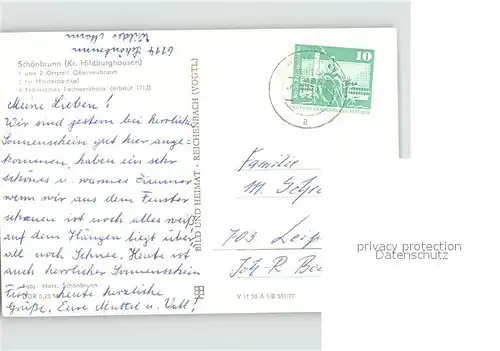 6114 Schönbrunn
Wilder Mann
Schönbrunn (Kr. Hildburghausen)
1 und 2 Ortsteil Oberneubrunn
3 Im
4 Fränkisches Fachwerkhaus (erbaut 1712)
Meine Lieben!
Wir sind gestern bei herrlichem
Sonnenschein gut hier ange-
kommen, haben ein sehr
schönes u. warmes Zimmer
wenn wir aus dem Fenster
schauen ist noch alles weiß
auf den Hängen liegt über-
all noch Schnee. Heute ist
auch herrlicher Sonnenschein
Foto: Hans, Schönbrunn
Für heute herzliche
DDR 0,20 M
Grüße, Eure Muttel u. Vati!
BILD UND HEIMAT · REICHENBACH (VOGTL)
10
a
Familie
M. Schr
703 Leip
Joh-R Be
V 11 50 A 1/B 501/77
privacy protection
Datenschutz